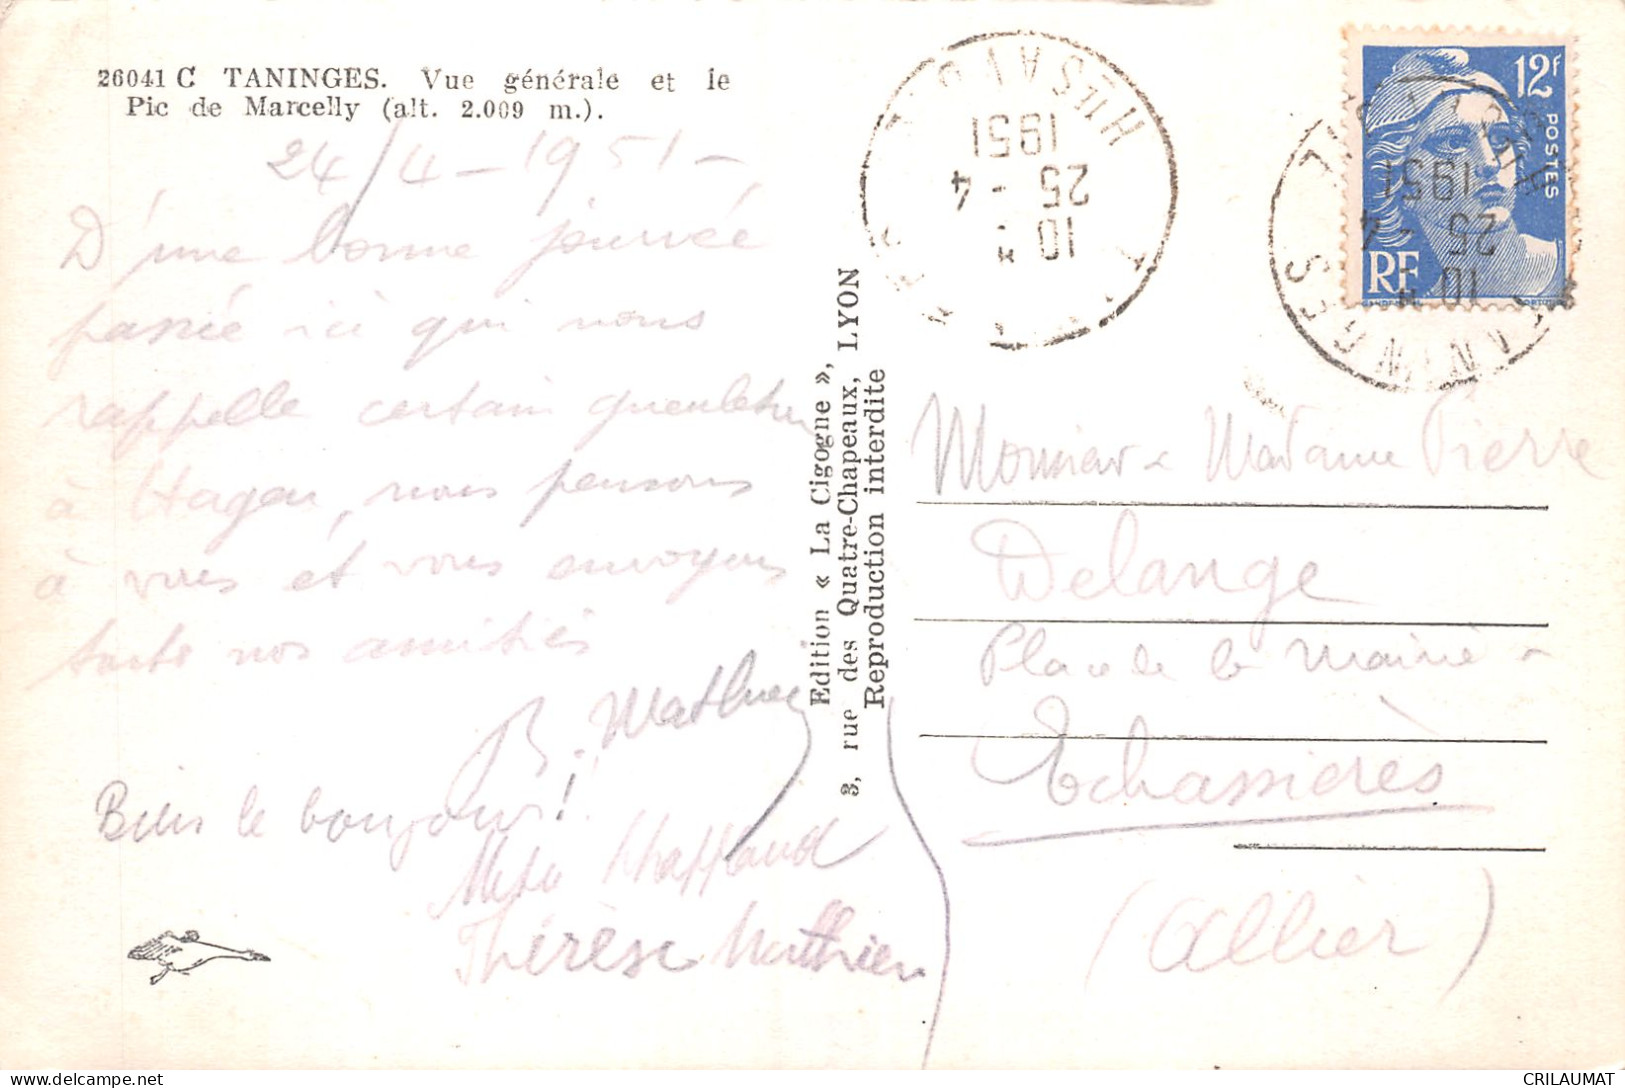 26041 C TANINGES. Vue générale et le
Pic de Marcelly (alt. 2.009 m.).
24/4-1951-
D'une bonne journée
passée ici qui nous
rappelle certain gueuleton
à Hagen, nous pensons
à vous et vous envoyons
toute nos amitiés
B. Mathieu
Bien le bonjour!
Thérèse Mathieu
Edition « La Cigogne », LYON
3, rue des Quatre-Chapeaux,
Reproduction interdite
TANINGES
Hte SAVOIE
10 H
25 - 4
1951
12F
POSTES
RF
TANINGES
Hte SAVOIE
10 H
25 - 4
1951
Monsieur & Madame Pierre
Delange
Place de la Mairie -
Echassières
(Allier)
CRILAUMAT